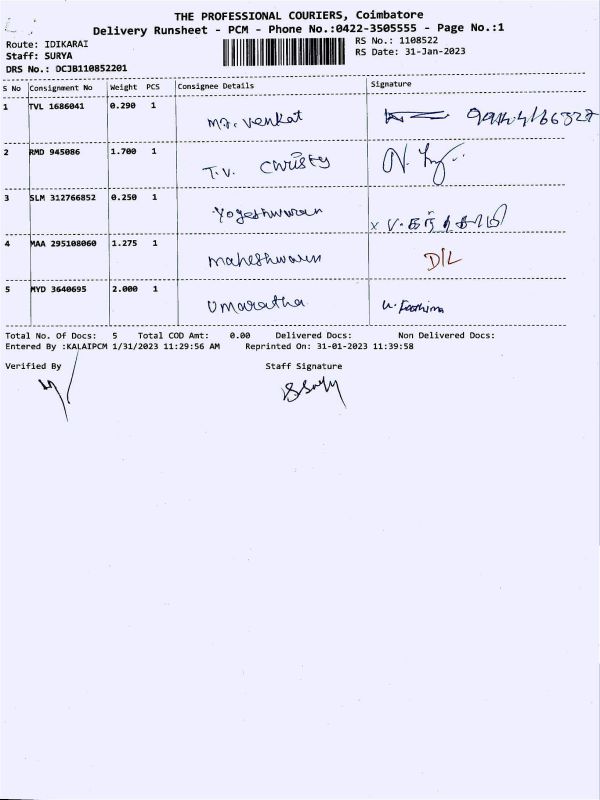 THE PROFESSIONAL COURIERS, Coimbatore
Delivery Runsheet - PCM - Phone No.:0422-3505555 - Page No.:1
Route: IDIKARAI
RS No.: 1108522
Staff: SURYA
RS Date: 31-Jan-2023
DRS No.: DCJB110852201
S No Consignment No Weight PCS Consignee Details Signature
1 TVL 1686041 0.290 1 Mr. Venkat
2 RMD 945086 1.700 1 T.V. Christy
3 SLM 312766852 0.250 1 Yogeshwaran
4 MAA 295108060 1.275 1 Maheshwaran D/L
5 MYD 3640695 2.000 1 Umaratha
Total No. Of Docs: 5 Total COD Amt: 0.00 Delivered Docs: Non Delivered Docs:
Entered By :KALAIPCM 1/31/2023 11:29:56 AM Reprinted On: 31-01-2023 11:39:58
Verified By Staff Signature